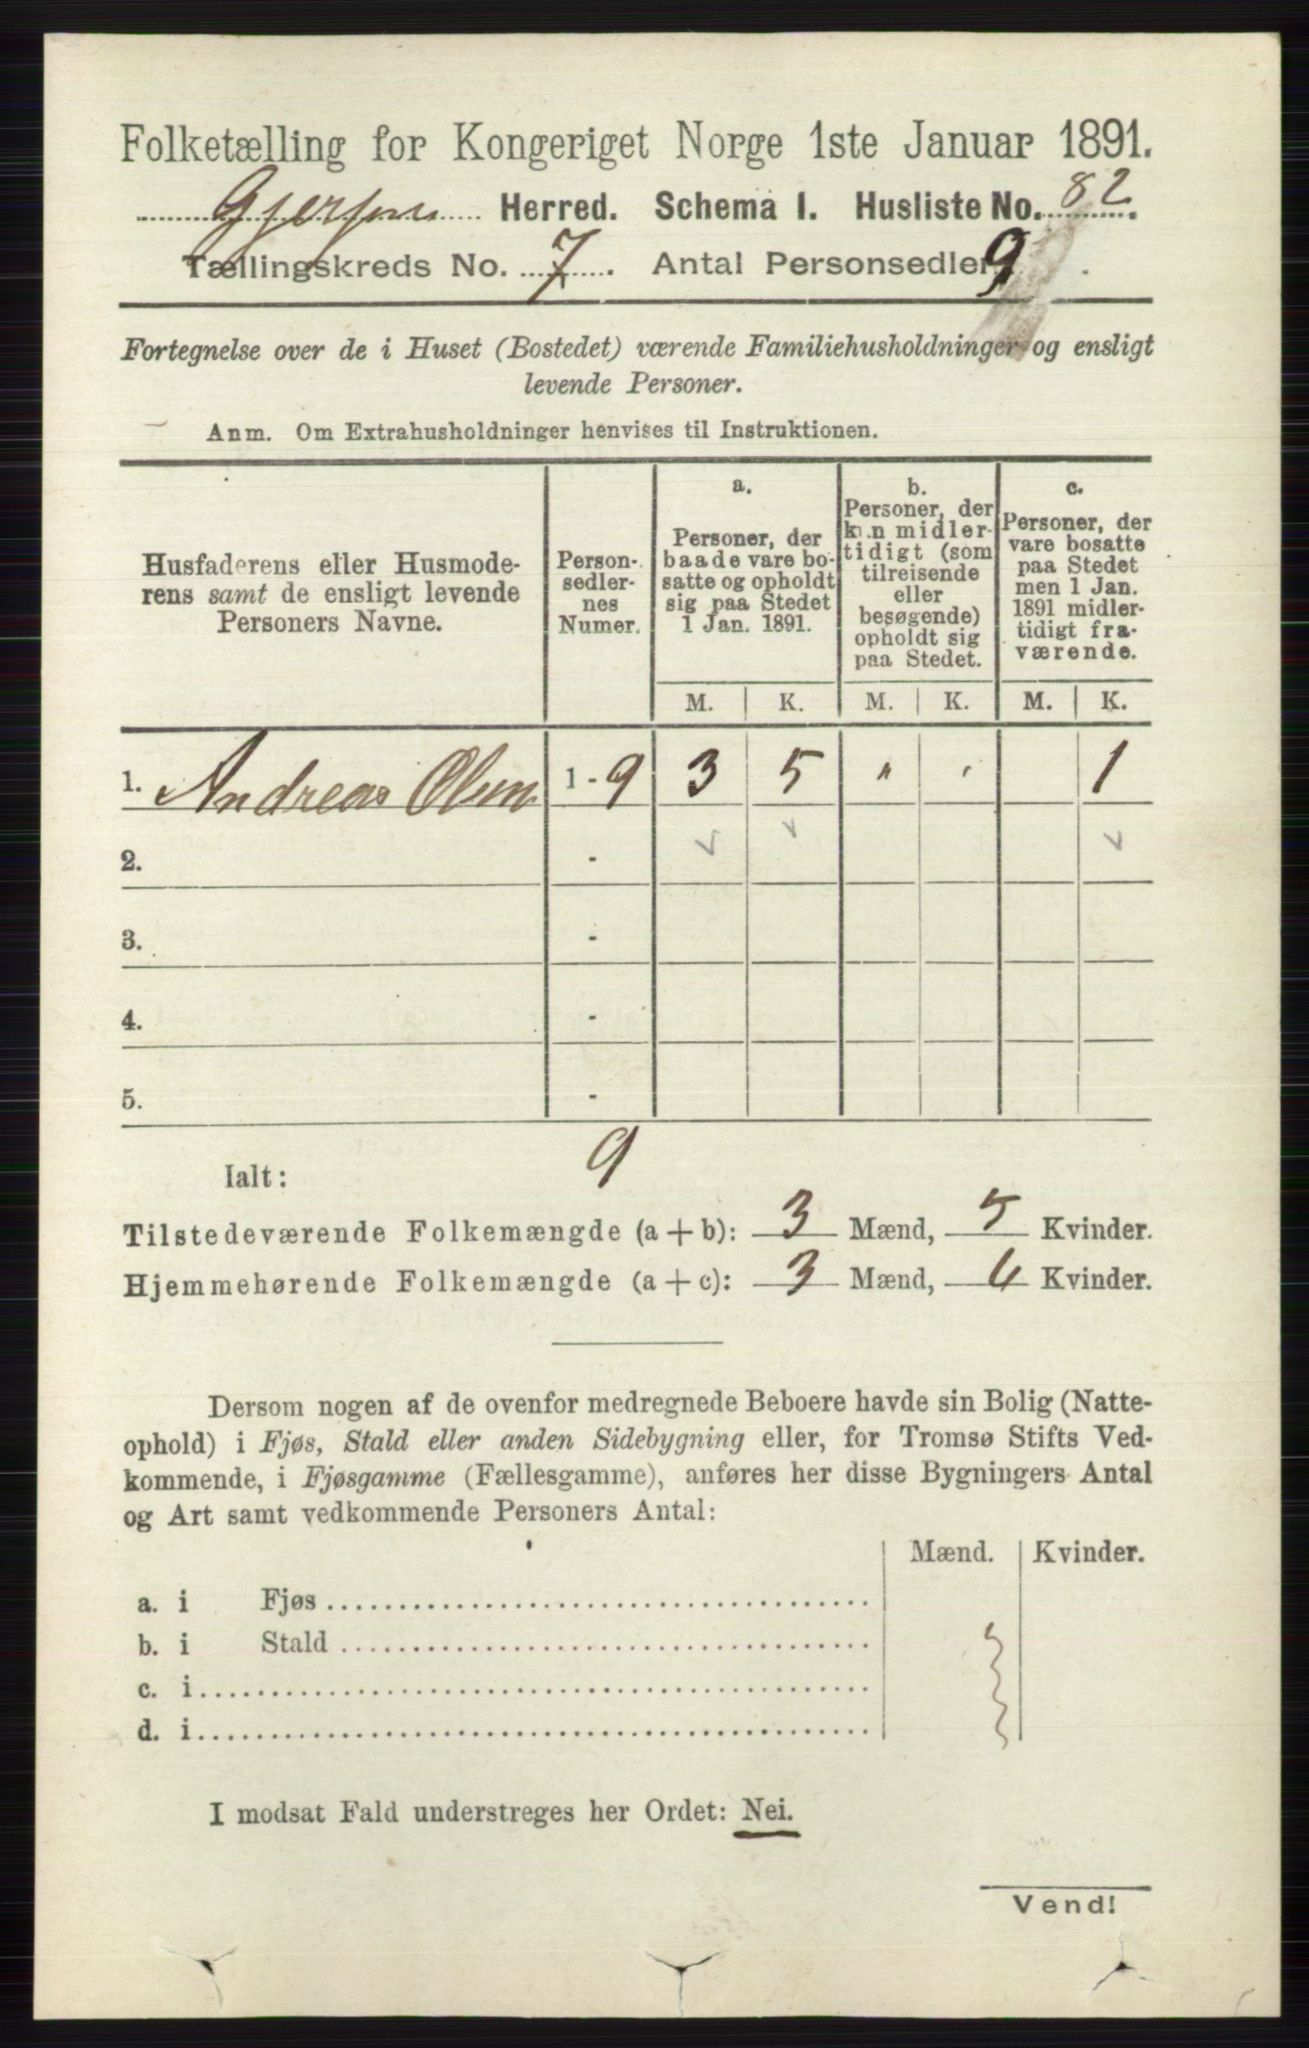 Folketælling for Kongeriget Norge 1ste Januar 1891.
Gjerpen Herred. Schema I. Husliste No. 82.
Tællingskreds No. 7. Antal Personsedler 9.
Fortegnelse over de i Huset (Bostedet) værende Familiehusholdninger og ensligt
levende Personer.
Anm. Om Extrahusholdninger henvises til Instruktionen.
Husfaderens eller Husmode-
rens samt de ensligt levende
Personers Navne.
Person-
sedler-
nes
Numer.
a.
Personer, der
baade vare bo-
satte og opholdt
sig paa Stedet
1 Jan. 1891.
b.
Personer, der
kun midler-
tidigt (som
tilreisende
eller
besøgende)
opholdt sig
paa Stedet.
c.
Personer, der
vare bosatte
paa Stedet
men 1 Jan.
1891 midler-
tidigt fra-
værende.
M. K. M. K. M. K.
1. Andreas Olsen 1 - 9 3 5 " ' 1
2. -
3. -
4. -
5. -
Ialt: 9
Tilstedeværende Folkemængde (a + b): 3 Mænd, 5 Kvinder.
Hjemmehørende Folkemængde (a + c): 3 Mænd, 6 Kvinder.
Dersom nogen af de ovenfor medregnede Beboere havde sin Bolig (Natte-
ophold) i Fjøs, Stald eller anden Sidebygning eller, for Tromsø Stifts Ved-
kommende, i Fjøsgamme (Fællesgamme), anføres her disse Bygningers Antal
og Art samt vedkommende Personers Antal:
Mænd. Kvinder.
a. i Fjøs
b. i Stald
c. i
d. i
I modsat Fald understreges her Ordet: Nei.
Vend!